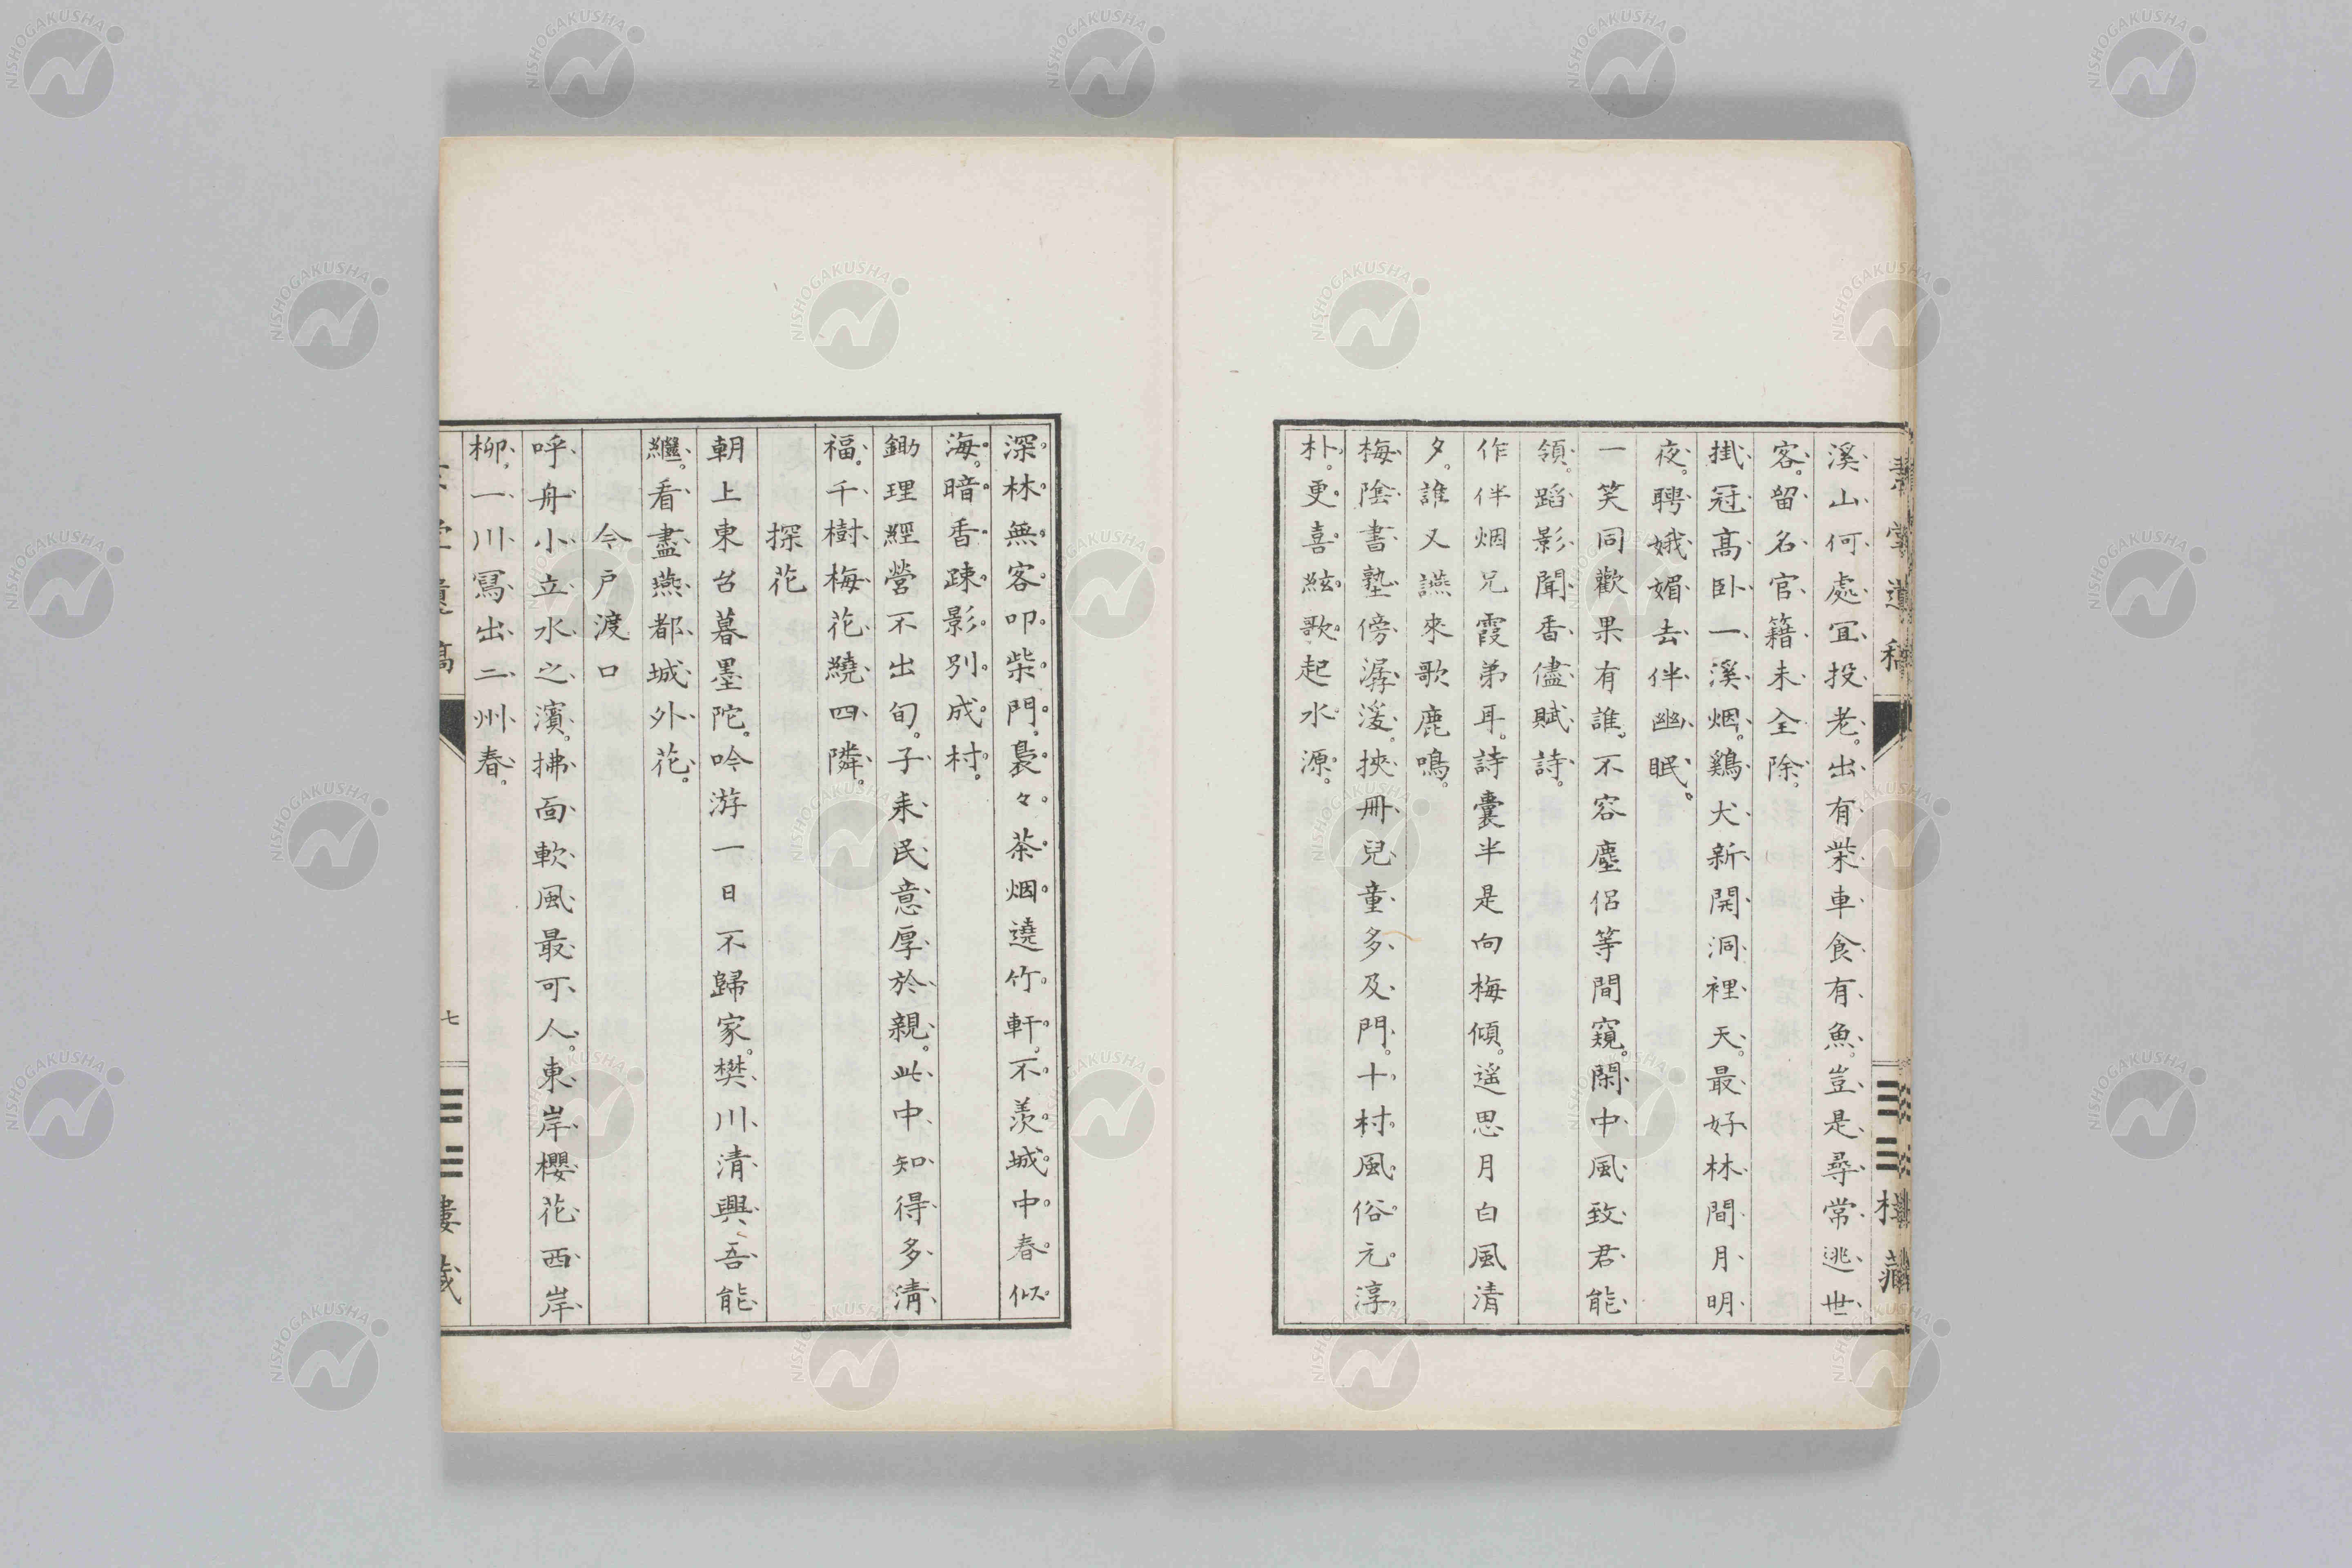 溪山何處宜投老。出有柴車食有魚。豈是尋常逃世
客。留名官籍未全除。
掛冠高臥一溪烟。鷄犬新開洞裡天。最好林間月明
夜。聘娥媚去伴幽眠。
一笑同歡果有誰。不容塵侶等間窺。閑中風致君能
領。蹈影聞香儘賦詩。
作伴烟兄霞弟耳。詩囊半是向梅傾。遥思月白風清
夕。誰又讌來歌鹿鳴。
梅陰書塾傍潺湲。挾冊兒童多及門。十村風俗元淳
朴。更喜絃歌起水源。
深林無客叩柴門。裊々茶烟遶竹軒。不羨城中春似
海。暗香踈影別成村。
鋤理經營不出旬。子来民意厚於親。此中知得多清
福。千樹梅花繞四隣。
探花
朝上東台暮墨陀。吟游一日不歸家。樊川清興吾能
繼。看盡燕都城外花。
今戸渡口
呼舟小立水之濱。拂面軟風最可人。東岸櫻花西岸
柳。一川寫出二州春。
七
NISHOGAKUSHA